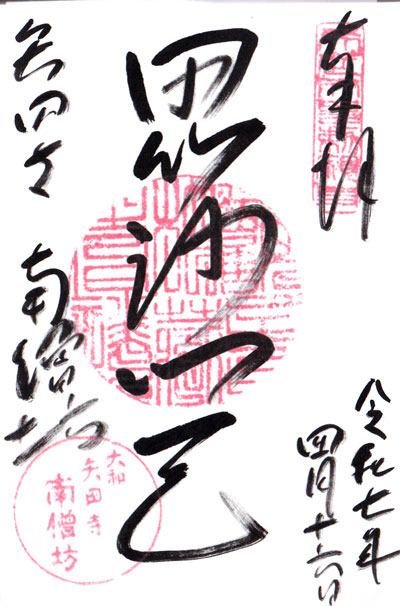 奉拝
令和七年
四月十六日
毘沙門天
矢田寺 南僧坊
大和
矢田寺
南僧坊